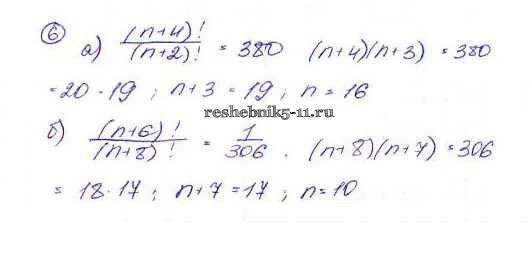 6 а) (n+4)! / (n+2)! = 380 (n+4)(n+3) = 380
= 20 · 19 ; n+3 = 19 ; n = 16
reshebnik5-11.ru
б) (n+6)! / (n+8)! = 1 / 306 . (n+8)(n+7) = 306
= 18 · 17 ; n+7 = 17 ; n = 10